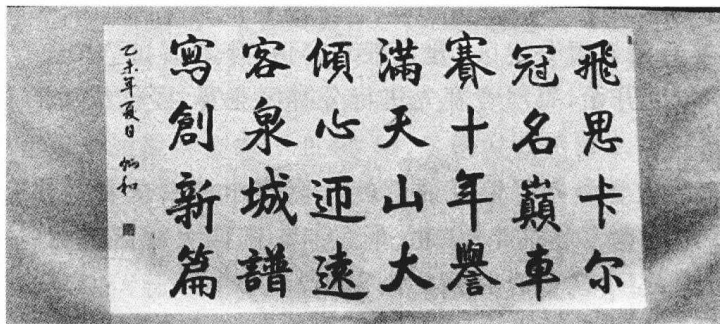 飛思卡尔
冠名巔車
賽十年譽
滿天山大
傾心迊遠
客泉城譜
寫創新篇
乙未年夏日 炳和